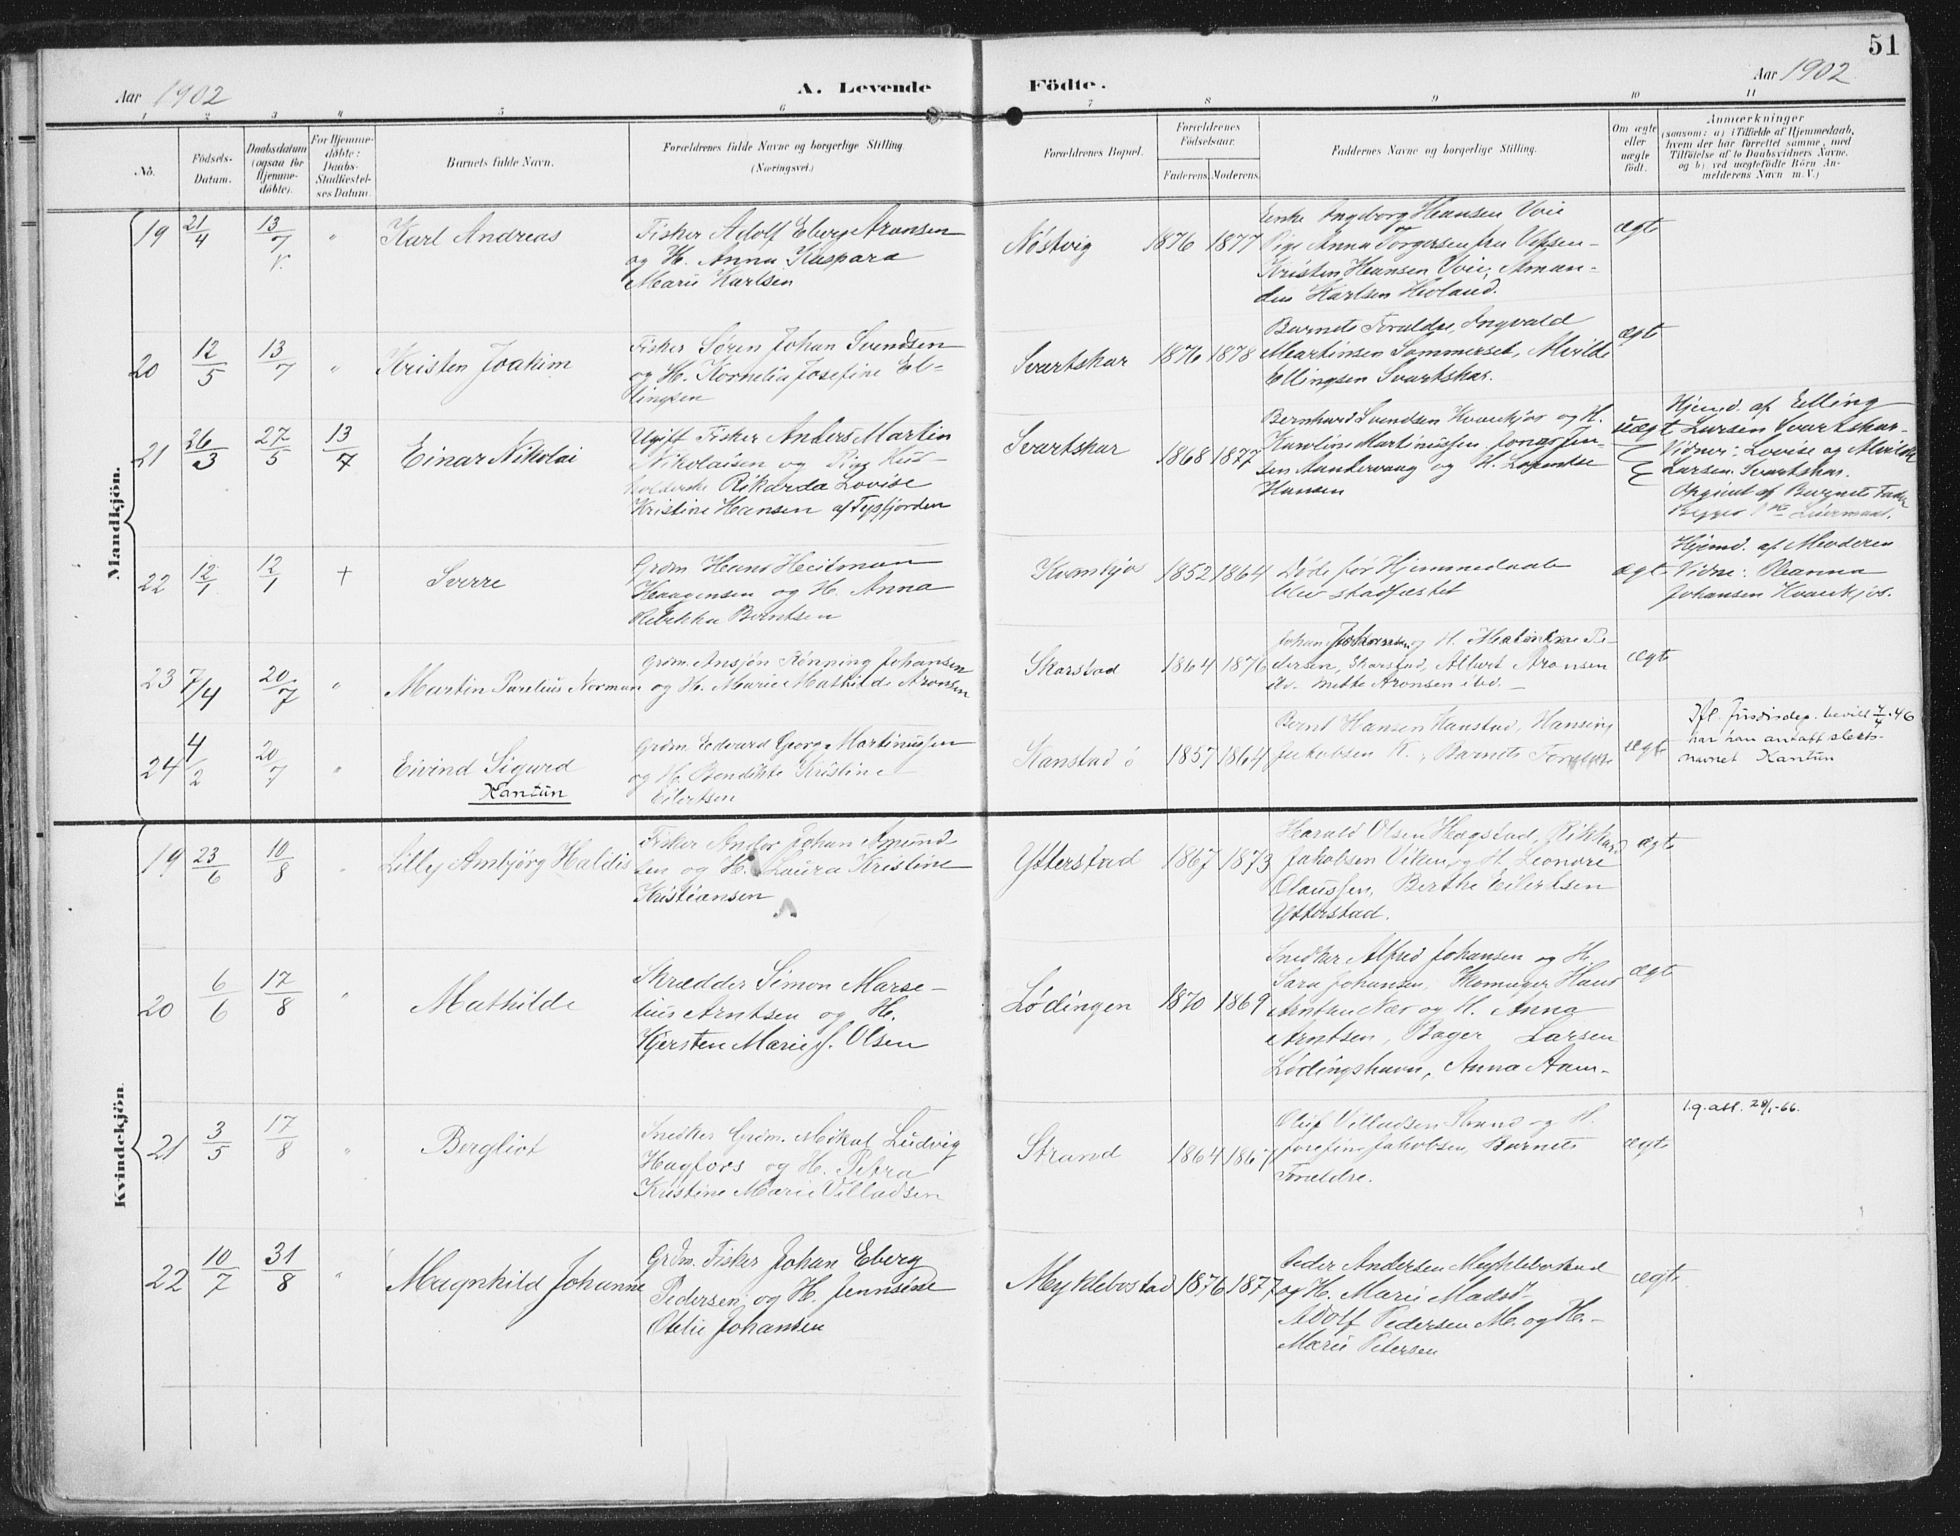 51
Aar 1902
A. Levende
Födte.
Aar 1902
1 2 3 4 5 6 7 8 9 10 11
No.
Födsels-
Datum.
Daabsdatum
(ogsaa for
Hjemme-
döbte).
For Hjemme-
döbte:
Daabs-
Stadfæstel-
ses Datum.
Barnets fulde Navn.
Forældrenes fulde Navne og borgerlige Stilling
(Næringsvei.)
Forældrenes Bopæl.
Forældrenes
Födselsaar.
Faderens. Moderens.
Faddernes Navne og borgerlige Stilling.
Om ægte
eller
uægte
födt.
Anmærkninger
(saasom: a) i Tilfælde af Hjemmedaab,
hvem der har forrettet samme, med
Tilföielse af to Daabsvidners Navne.
og b) ved uægtefödte Börn An-
melderens Navn m. V.)
Mandkjön.
19 21/4 13/7 v. " Karl Andreas
Fisker Adolf Eberg Aronsen
og H. Anna Kaspara
Marie Karlsen
Nöstvig 1876 1877
Enke Ingeborg Hansen Voie
Pige Anna Torgersen fra Vefsen
Kristen Hansen Voie, Aman-
dus Karlsen Hovland.
ægte
20 12/5 13/7 " Kristen Joakim
Fisker Sören Johan Svendsen
og H. Kornelia Josefine El-
lingsen
Svartskar 1876 1878
Barnets Foreldre, Ingvald
Martinsen Sommerset, Merilde
Ellingsen Svartskar.
ægte
21 26/3 27/5 13/7 Einar Nikolai
Ugift Fisker Anders Martin
Nikolaisen og Pige Hus-
holderske Rikarda Lovise
Kristine Hansen af Tysfjorden
Svartskar 1868 1877
Bernhard Svendsen Kvankjos og H.
Karoline Martinussen. Jen-
sen Sandervaag og H. Lorentse
Hansen
uægt
Hjemd. af Elling
Larsen Svartskar.
Vidner: Lovise og Merilde
Larsen Svartskar.
Opgivet af Barnets Fader
Begges 1ste Leiermaal.
22 12/1 12/1 + Sverre
Grdm Hans Heitman
Haagensen og H. Anna
Rebekka Berntsen
Kvankjos 1852 1864
Döde för Hjemmedaab
blev stadfæstet
ægt
Hjemd. af Moderen
Vidne: Oleanna
Johansen Kvankjos.
23 7/4 20/7 " Martin Parelius Norman
Grdm. Ansjön Rönning Johansen
og H. Marie Mathilde Aronsen
Skarstad 1864 1876
Johan og H. Pe-
dersen, Skarstad, Albert Aronsen
ibd. Mette Aronsen ibd. –
ægte
24 4/2 20/7 " Eivind Sigurd
Kantun
Grdm Edvard Georg Martinussen
og H. Bendikte Kristine
Eilertsen
Kanstad ö 1857 1864
Bernt Hansen Kanstad, Hansine
Jakobsen K., Barnets Foreldre
ægte
Ifl. Jusdisdep. bevill 4/4.46
har han antatt slekts-
navnet Kantun
Kvindekjön.
19 23/6 10/8 Lilly Ambjörg Haldis
Fisker Andor Johan Amund
sen og H. Laura Kristine
Kristiansen
Ytterstad 1867 1873
Harald Olsen Hægstad, Rikhard
Jakobsen Viken og H. Leonore
Olaussen, Berthe Eilertsen
Ytterstad.
ægte
20 6/6 17/8 " Mathilde
Skrædder Simon Marse-
lius Arntsen og H.
Kjersten Marie J. Olsen
Lödingen 1870 1869
Snedker Alfred Johansen og H.
Sara Johansen, Hans
Arntsen Nes og H. Anna
Arntsen, Bager Larsen
Lödingshavn, Anna Aam-
ægte
21 3/5 17/8 " Bergliot
Snedker Grdm. Mikal Ludvig
Hagfors og H. Petra
Kristine Marie Villadsen
Strand 1864 1867
Oluf Villadsen Strand og H.
Josefine Jakobsen, Barnets
Foreldre.
ægte
l.g.att. 28/1-66.
22 10/7 31/8 " Magnhild Johanne
Grdm. Fisker Johan Eberg
Pedersen og H. Jennsine
Otelie Johansen
Myklebostad 1876 1877
Peder Andersen Myklebostad
og H. Marie Madsd.
Adolf Pedersen M. og H.
Marie Petersen
ægte